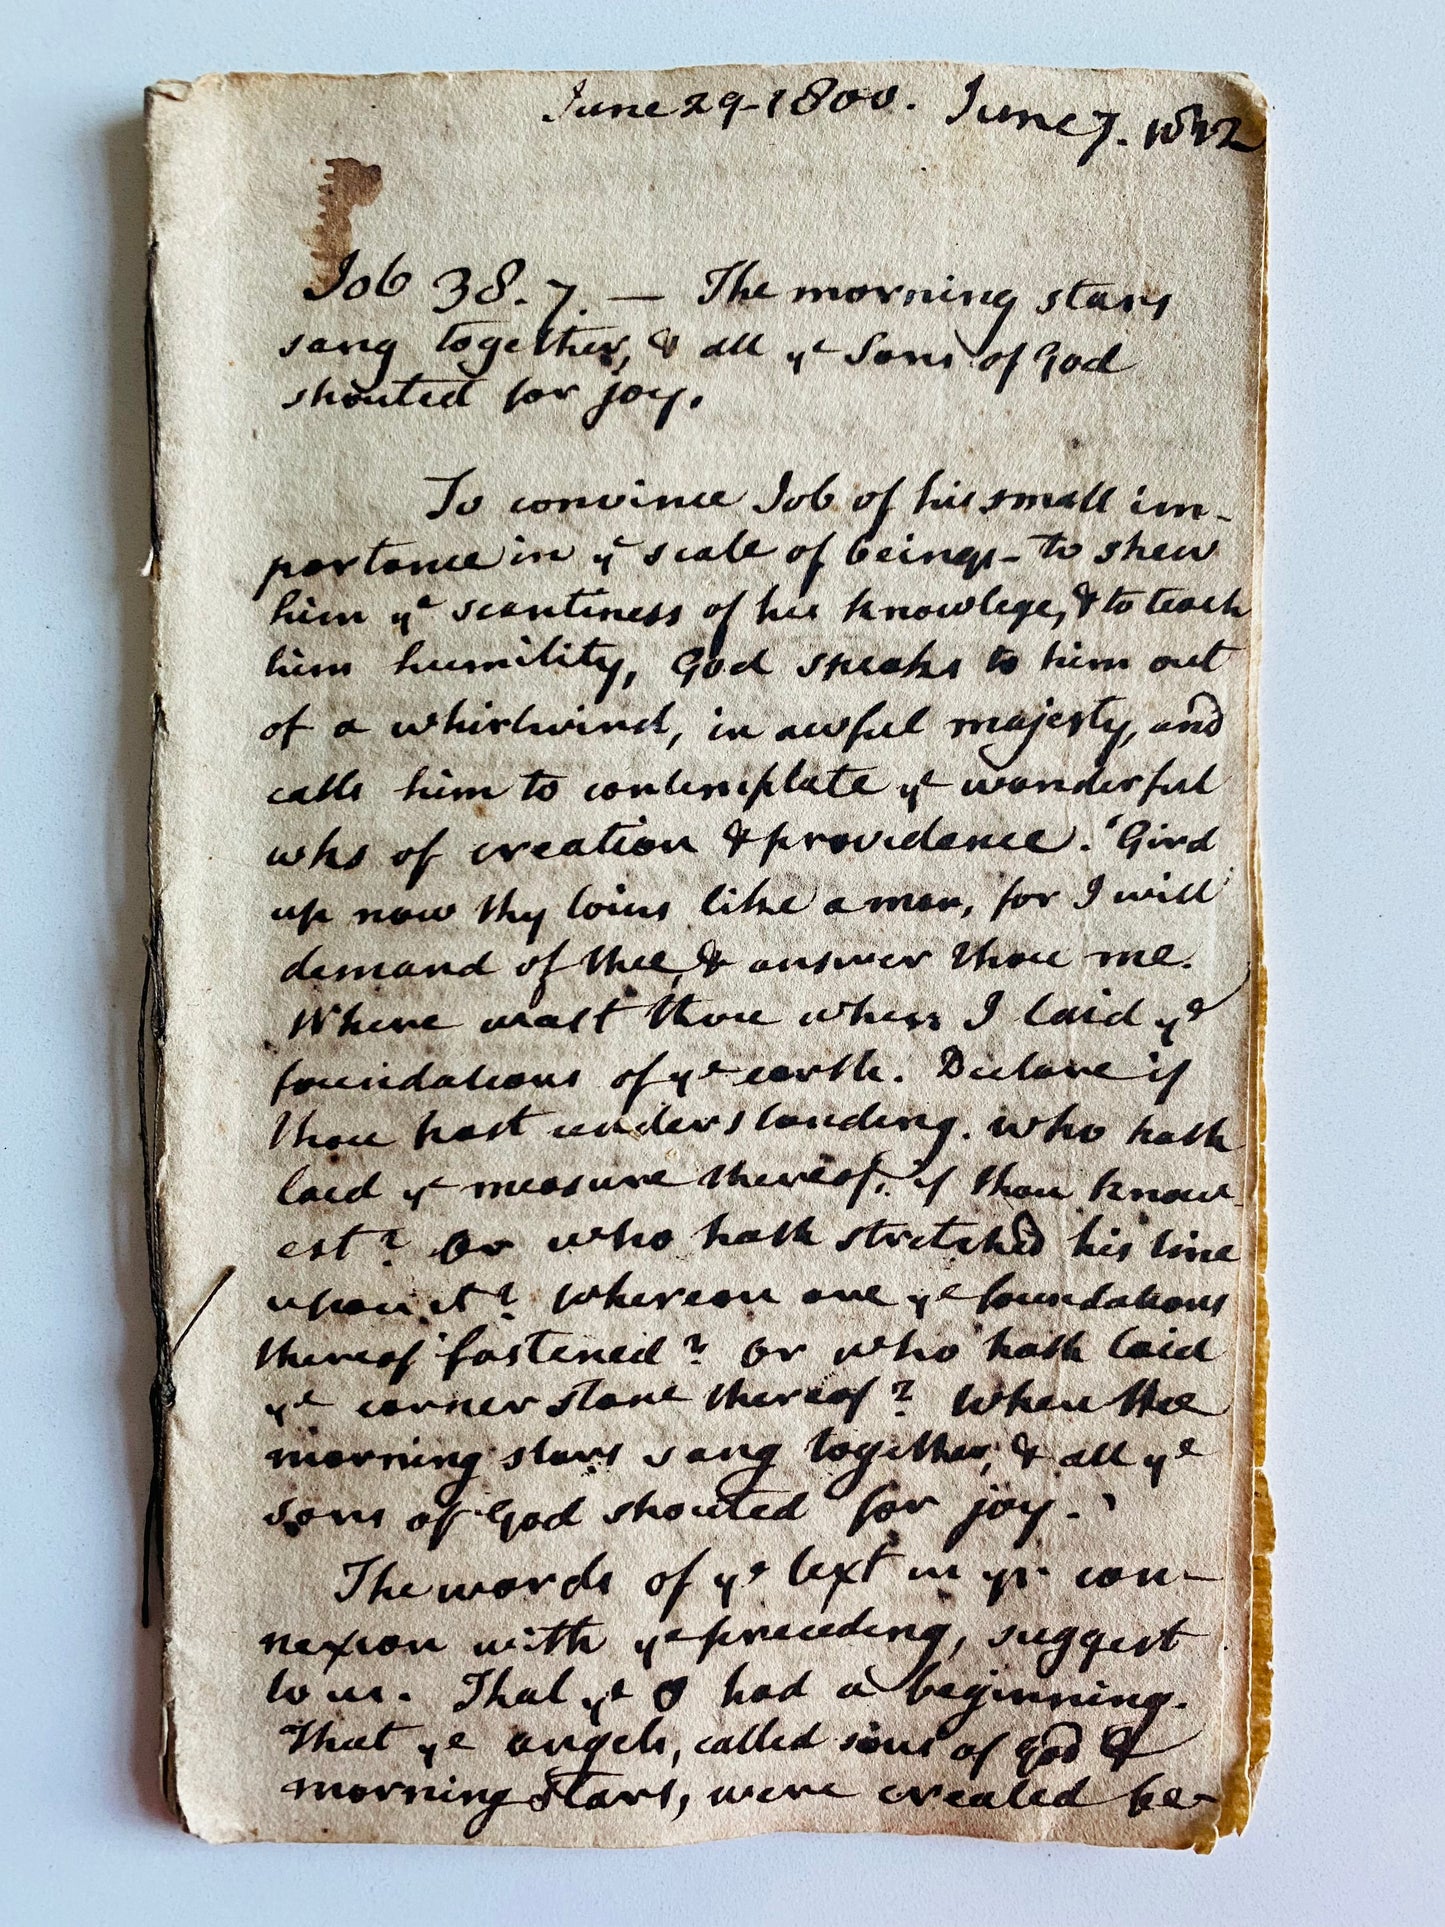 June 29-1800. June 7.
Job 38.7. — The morning stars
sang together, & all ye Sons of God
shouted for joy.
To convince Job of his small im-
portance in ye scale of beings - to shew
him ye scantiness of his knowlege, & to teach
him humility, God speaks to him out
of a whirlwind, in awful majesty, and
calls him to contemplate ye wonderful
wks of creation & providence. 'Gird
up now thy loins like a man, for I will
demand of thee, & answer thou me.
Where wast thou when I laid ye
foundations of ye earth. Declare if
thou hast understanding. Who hath
laid ye measure thereof, if thou know-
est? Or who hath stretched his line
upon it? Whereon are ye foundations
thereof fastened? Or who hath laid
ye corner stone thereof? When the
morning stars sang together, & all ye
sons of God shouted for joy.'
The words of ye text in yr con-
nexion with ye preceeding, suggest
to us. That ye had a beginning.
That ye angels, called sons of God &
morning stars, were created be-